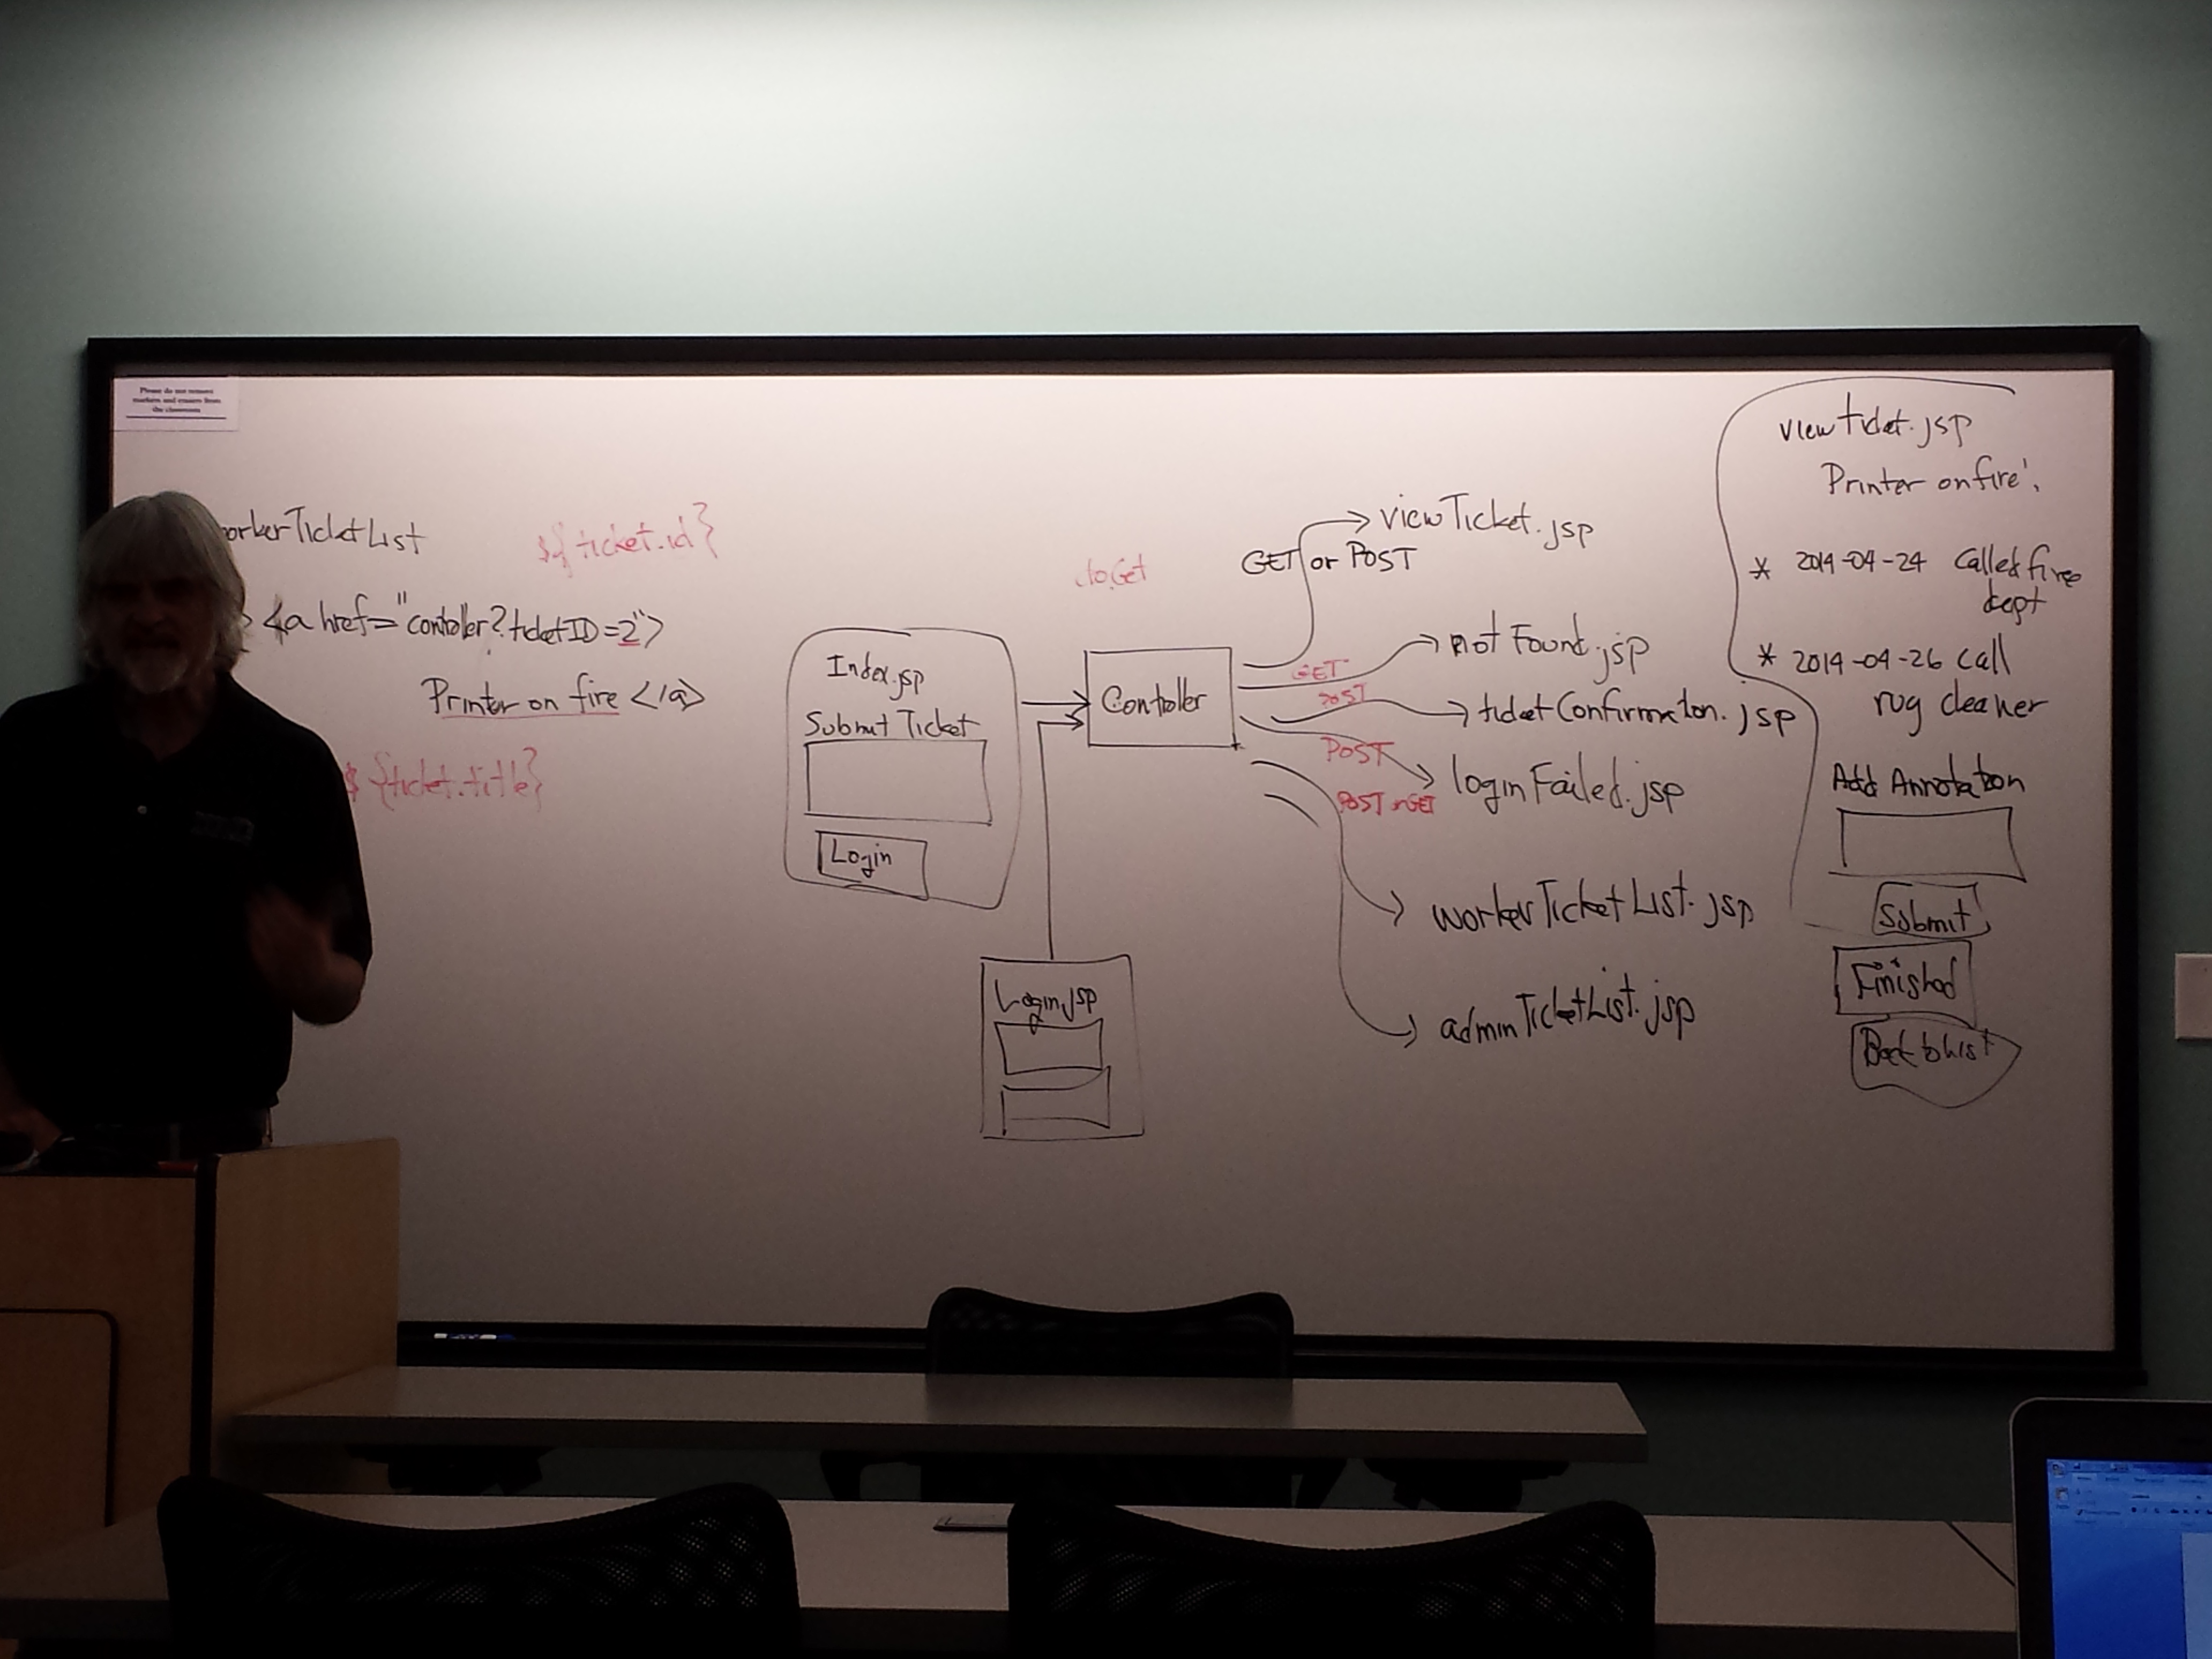 Please do not remove
markers and erasers from
the classroom
orkerTicketList
${ticket.id}
<a href="contoller?ticketID=2">
Printer on fire </a>
${ticket.title}
Index.jsp
Submit Ticket
Login
Login.jsp
doGet
Controller
GET or POST
viewTicket.jsp
GET
notFound.jsp
POST
ticketConfirmaton.jsp
POST
loginFailed.jsp
POST or GET
workerTicketList.jsp
adminTicketList.jsp
viewticket.jsp
Printer on fire!
* 2014-04-24 Called fire
dept
* 2014-04-26 Call
rug cleaner
Add Annotation
Submit
Finished
Back to List